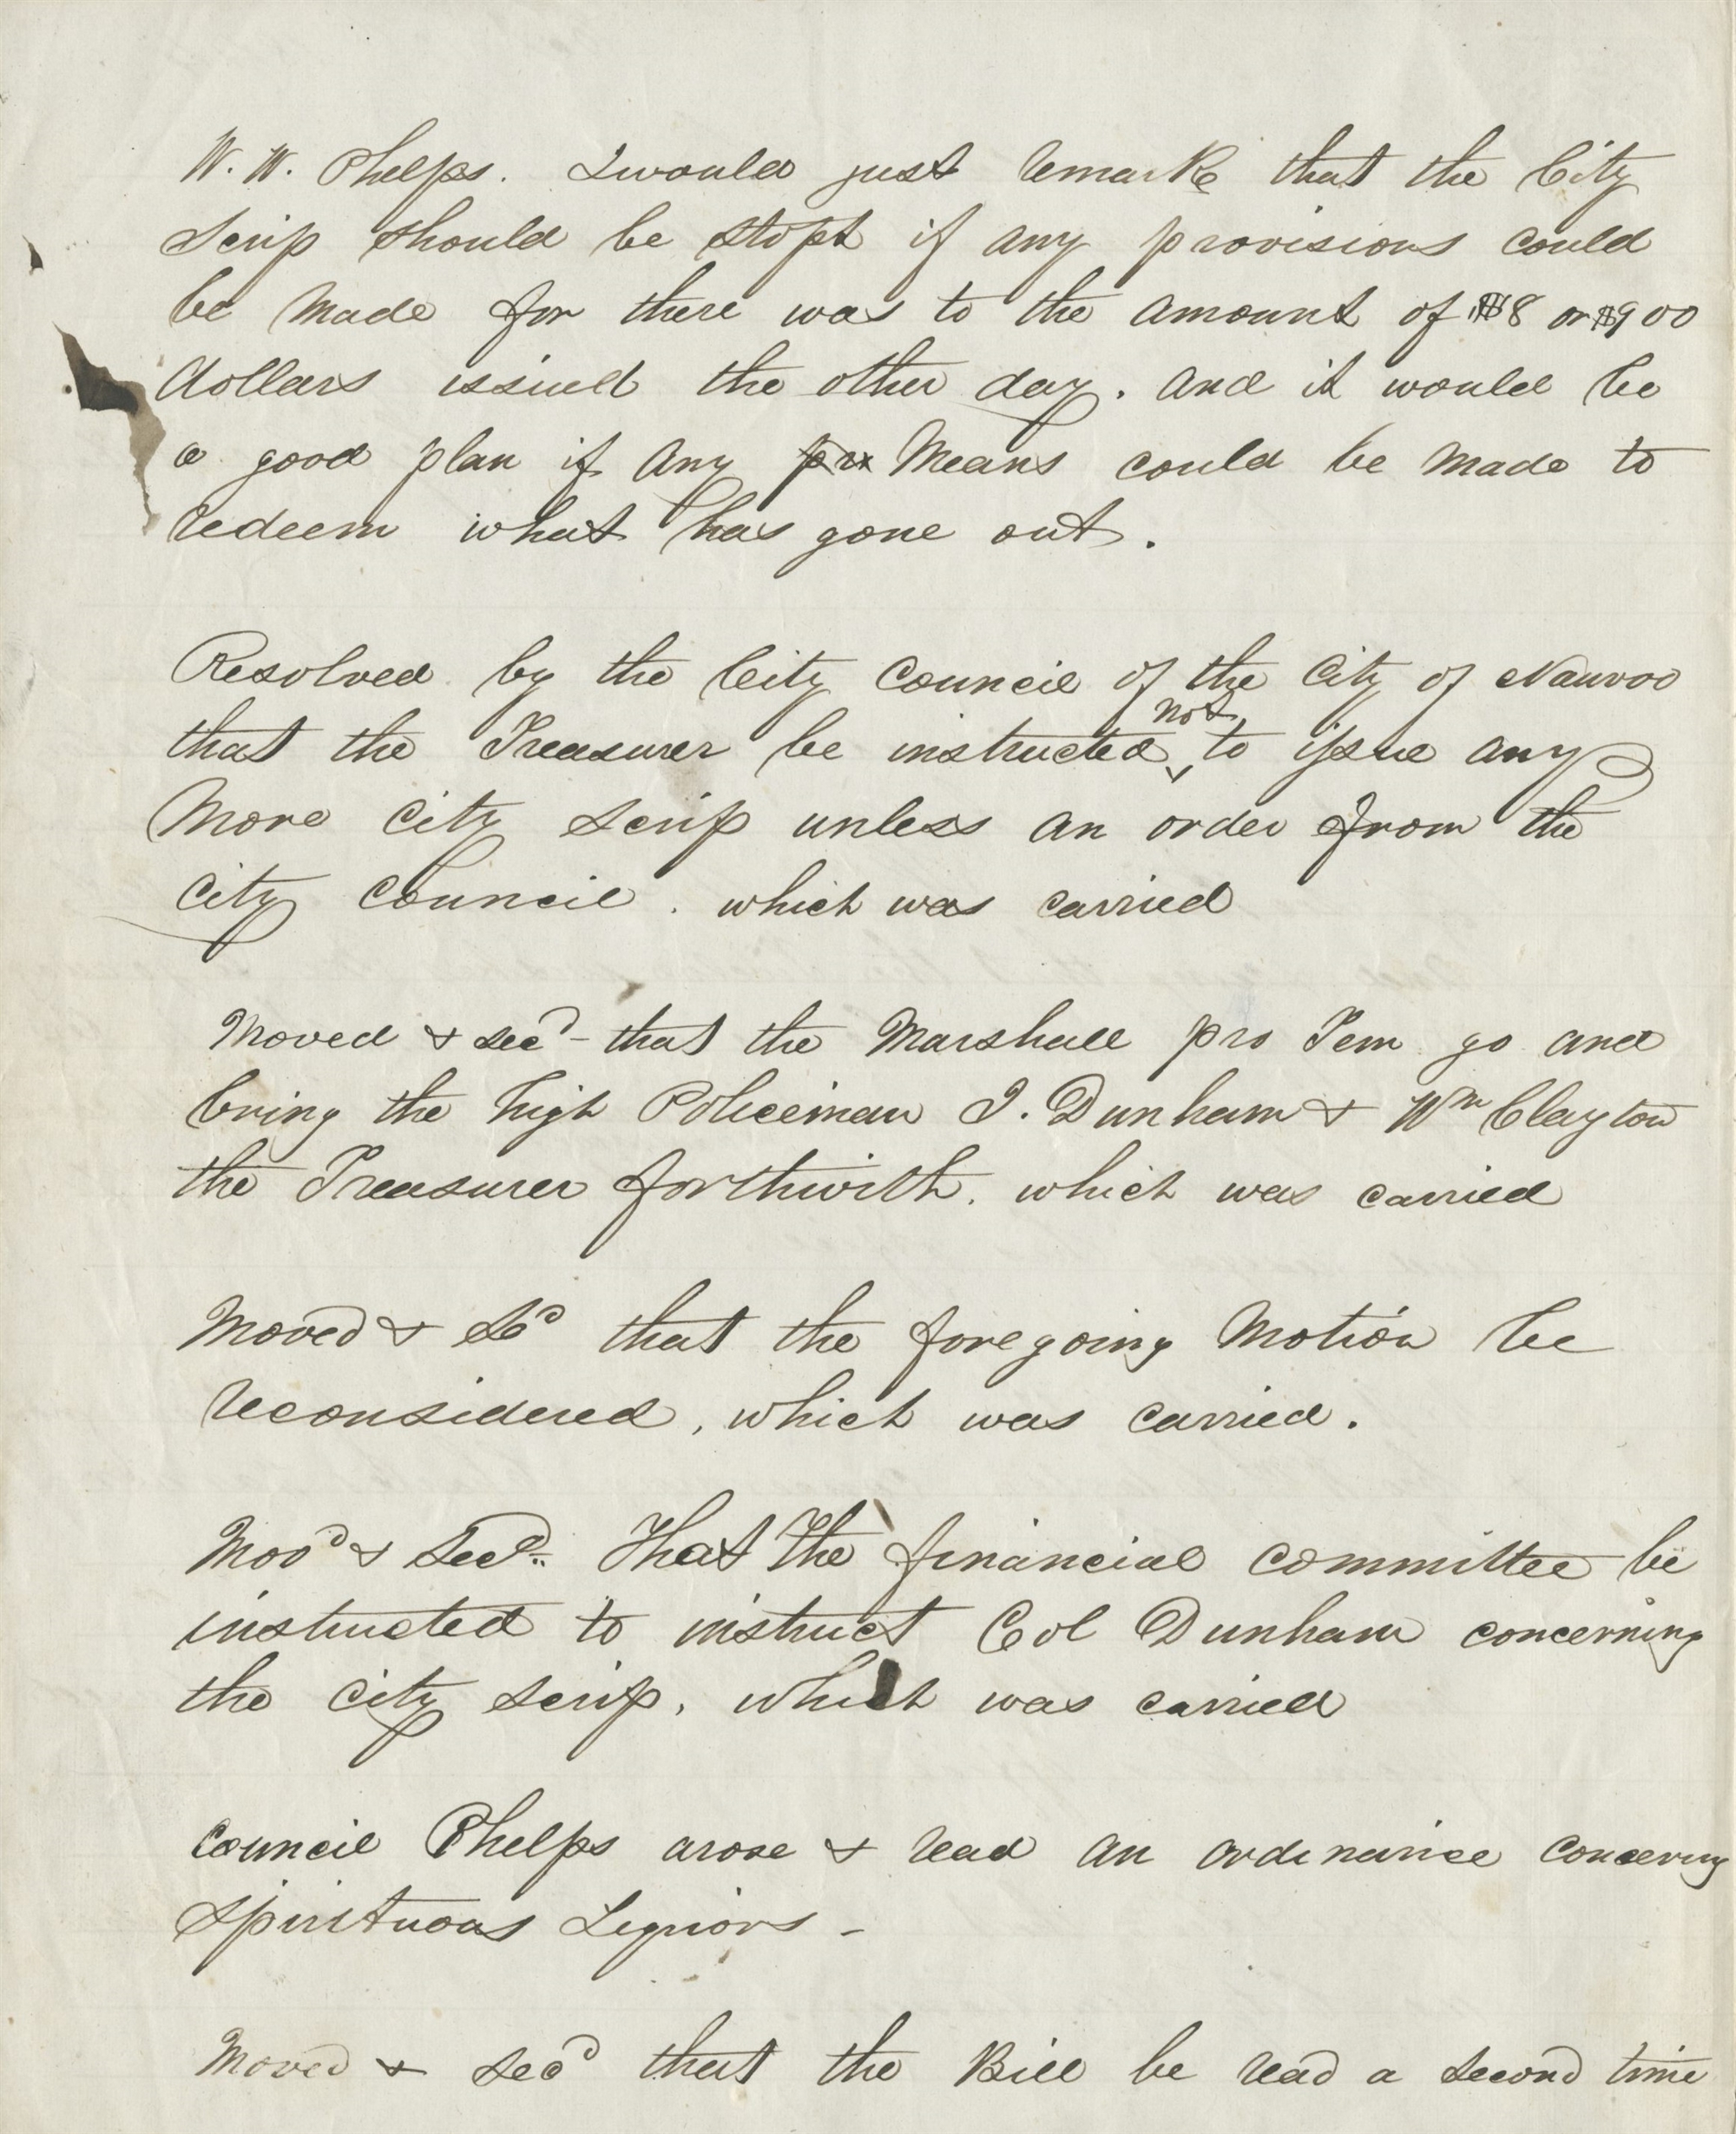 W. W. Phelps. I would just remark that the City
Scrip should be stopt if any provisions could
be made for there was to the amount of $8 or $900
dollars issued the other day. and it would be
a good plan if any pro Means could be made to
redeem what has gone out.
Resolved by the City Council of the City of Nauvoo
that the Treasurer be instructed not to issue any
More City Scrip unless an order from the
City Council. which was carried
Moved & secd- that the Marshall pro Tem go and
bring the high Policeman J. Dunham & Wm Clayton
the Treasurer forthwith. which was carried
Moved & Scd that the foregoing Motion be
reconsidered, which was carried.
Movd & Secd.. That The financial committee be
instructed to instruct Col Dunham concerning
the city scrip, which was carried
Council Phelps arose & read an ordinance concerning
Spirituous Liquors -
Moved & Secd that the Bill be read a second time